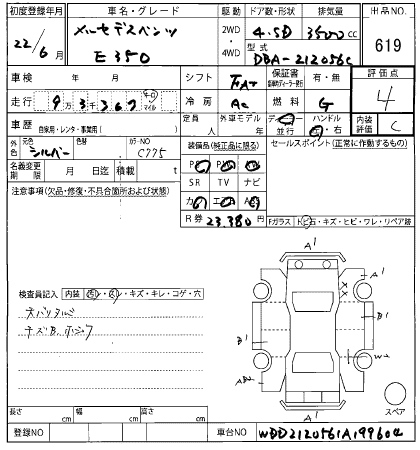 初度登録年月 車名・グレード 駆動 ドア数・形状 排気量 出品NO.
22/6月 メルセデスベンツ 2WD・4WD 4.5D 3500cc 619
E350 型式 DBA-212056C
車検 年 月 シフト FAT 保証書 有・無 評価点
走行 9 3 3 6 7 キロ マイル 冷房 AC 燃料 G 4
車歴 自家用・レンタ・事業用( ) 定員 人 外車モデル 年 ディーラー・並行 ハンドル 左・右 内装評価 C
外色 元色 シルバー 色替 カラーNO C775 装備品(純正品に限る) セールスポイント(正常に作動するもの)
名義変更期限 月 日迄 積載 t PS PW AW
注意事項(欠品・修復・不具合箇所および状態) SR TV ナビ
カワ エアB ABS
R券 23,380円 Fガラス トビ石・キズ・ヒビ・ワレ・リペア跡
A1
A1
検査員記入 内装 汚レ・スレ・キズ・キレ・コゲ・穴
B1 B1
キズB
W1
A1
スペア
長さ cm 幅 cm 高さ cm
登録NO 車台NO WDD2120561A199604